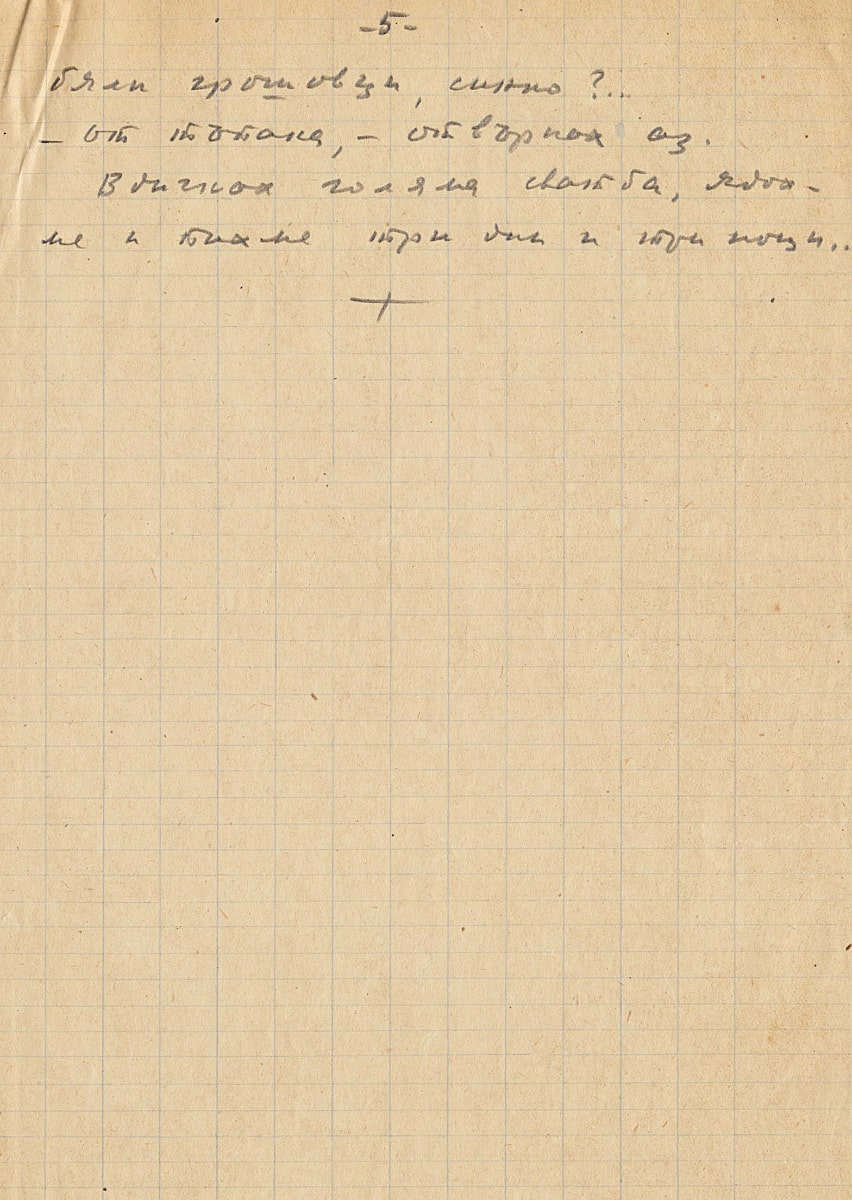 -5-
бяли грошовци, синко?..
- от тъпана, - отвърнах аз.
Вдигнах голяма сватба, ядох-
ме и пихме три дни и три нощи..